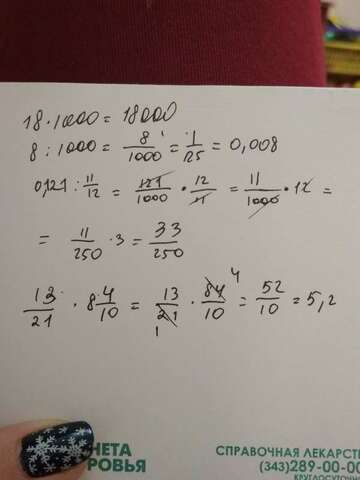 18·1000 = 18000
8 : 1000 = 8/1000 = 1/125 = 0,008
0,121 : 11/12 = 121/1000 · 12/11 = 11/1000 · 12 =
= 11/250 · 3 = 33/250
13/21 · 8 4/10 = 13/21 · 84/10 = 52/10 = 5,2
4
1
НЕТА
РОВЬЯ
СПРАВОЧНАЯ ЛЕКАРСТ
(343)289-00-00
КРУГЛОСУТОЧН